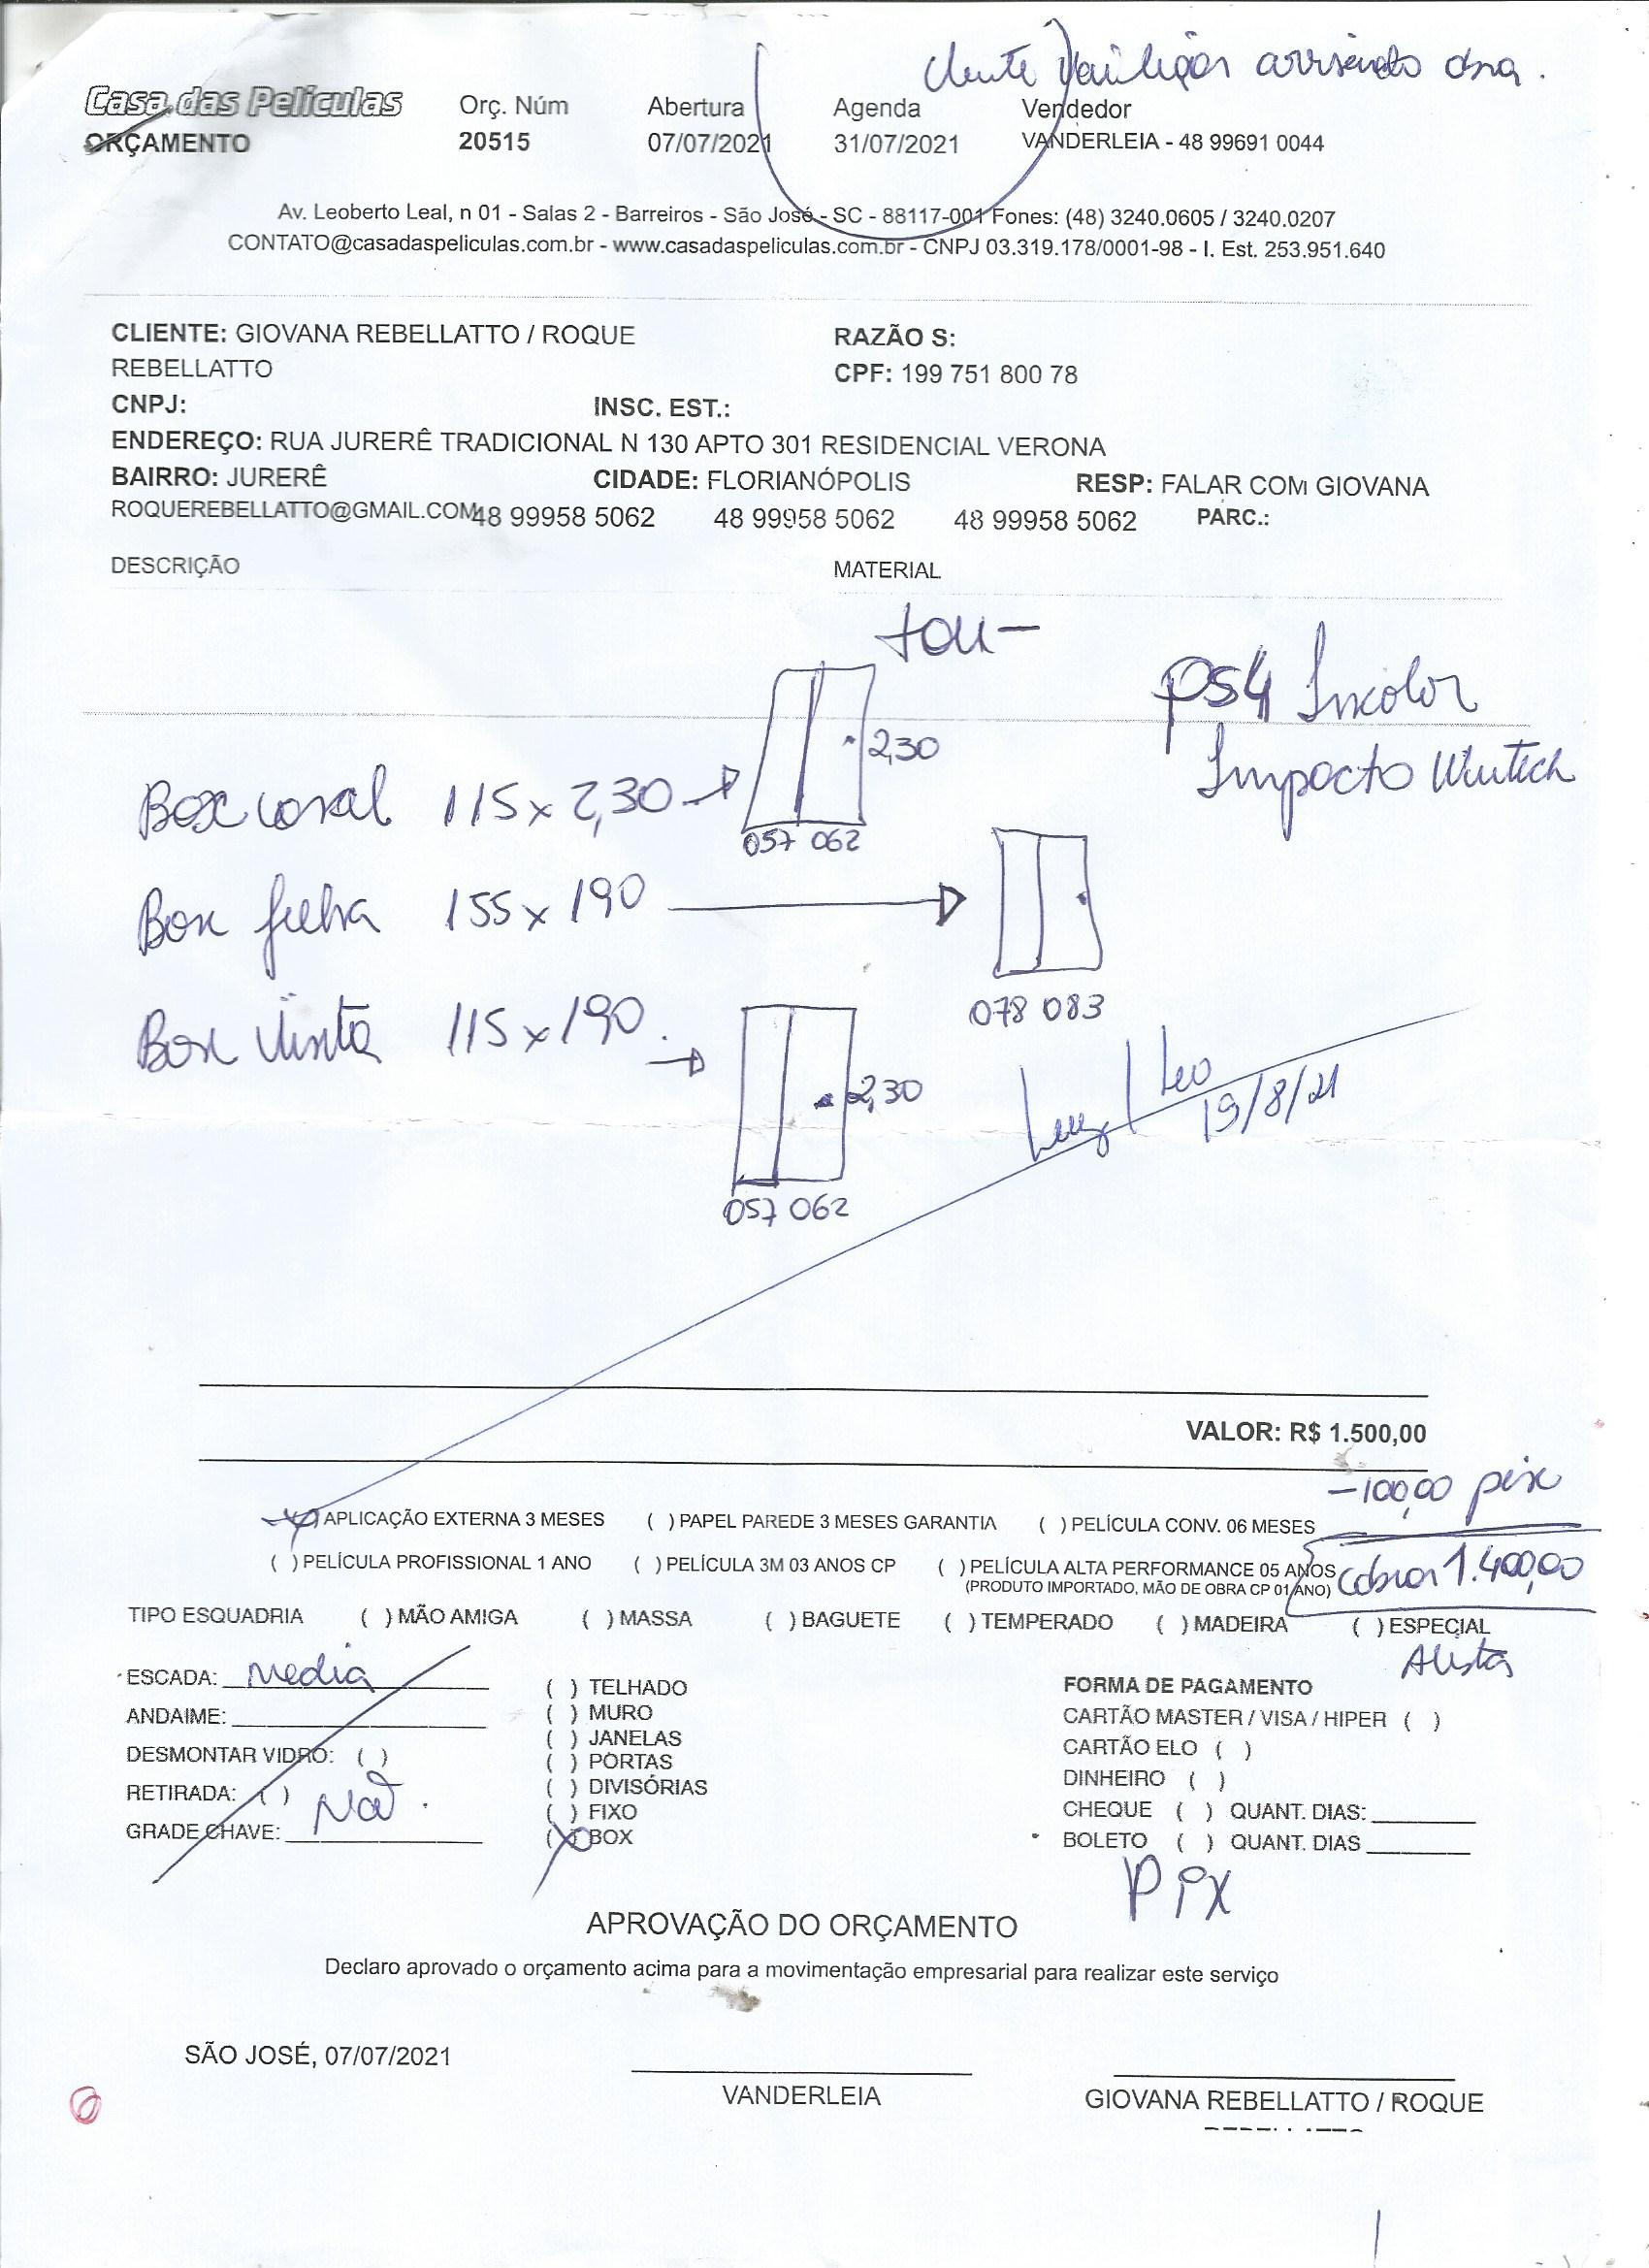 Cliente vai ligar avisando dna.
Casa das Películas
ORÇAMENTO
Orç. Núm
20515
Abertura
07/07/2021
Agenda
31/07/2021
Vendedor
VANDERLEIA - 48 99691 0044
Av. Leoberto Leal, n 01 - Salas 2 - Barreiros - São José - SC - 88117-001 Fones: (48) 3240.0605 / 3240.0207
CONTATO@casadaspeliculas.com.br - www.casadaspeliculas.com.br - CNPJ 03.319.178/0001-98 - I. Est. 253.951.640
CLIENTE: GIOVANA REBELLATTO / ROQUE
REBELLATTO
RAZÃO S:
CPF: 199 751 800 78
CNPJ: INSC. EST.:
ENDEREÇO: RUA JURERÊ TRADICIONAL N 130 APTO 301 RESIDENCIAL VERONA
BAIRRO: JURERÊ CIDADE: FLORIANÓPOLIS RESP: FALAR COM GIOVANA
ROQUEREBELLATTO@GMAIL.COM 48 99958 5062 48 99958 5062 48 99958 5062 PARC.:
DESCRIÇÃO MATERIAL
PS4 Incolor
Impacto Wintech
2,30
Box casal 115x2,30
057 062
Box filha 155x190
078 083
Box visita 115x190.
2,30
057 062
Leo
19/8/21
VALOR: R$ 1.500,00
-100,00 pix
APLICAÇÃO EXTERNA 3 MESES ( ) PAPEL PAREDE 3 MESES GARANTIA ( ) PELÍCULA CONV. 06 MESES
( ) PELÍCULA PROFISSIONAL 1 ANO ( ) PELÍCULA 3M 03 ANOS CP ( ) PELÍCULA ALTA PERFORMANCE 05 ANOS
(PRODUTO IMPORTADO, MÃO DE OBRA CP 01 ANO)
cobrar 1.400,00
TIPO ESQUADRIA ( ) MÃO AMIGA ( ) MASSA ( ) BAGUETE ( ) TEMPERADO ( ) MADEIRA ( ) ESPECIAL
Avista
ESCADA: Media
ANDAIME:
DESMONTAR VIDRO: ( )
RETIRADA: ( )
Não.
GRADE CHAVE:
( ) TELHADO
( ) MURO
( ) JANELAS
( ) PORTAS
( ) DIVISÓRIAS
( ) FIXO
(X) BOX
FORMA DE PAGAMENTO
CARTÃO MASTER / VISA / HIPER ( )
CARTÃO ELO ( )
DINHEIRO ( )
CHEQUE ( ) QUANT. DIAS:
BOLETO ( ) QUANT. DIAS
Pix
APROVAÇÃO DO ORÇAMENTO
Declaro aprovado o orçamento acima para a movimentação empresarial para realizar este serviço
SÃO JOSÉ, 07/07/2021
VANDERLEIA
GIOVANA REBELLATTO / ROQUE